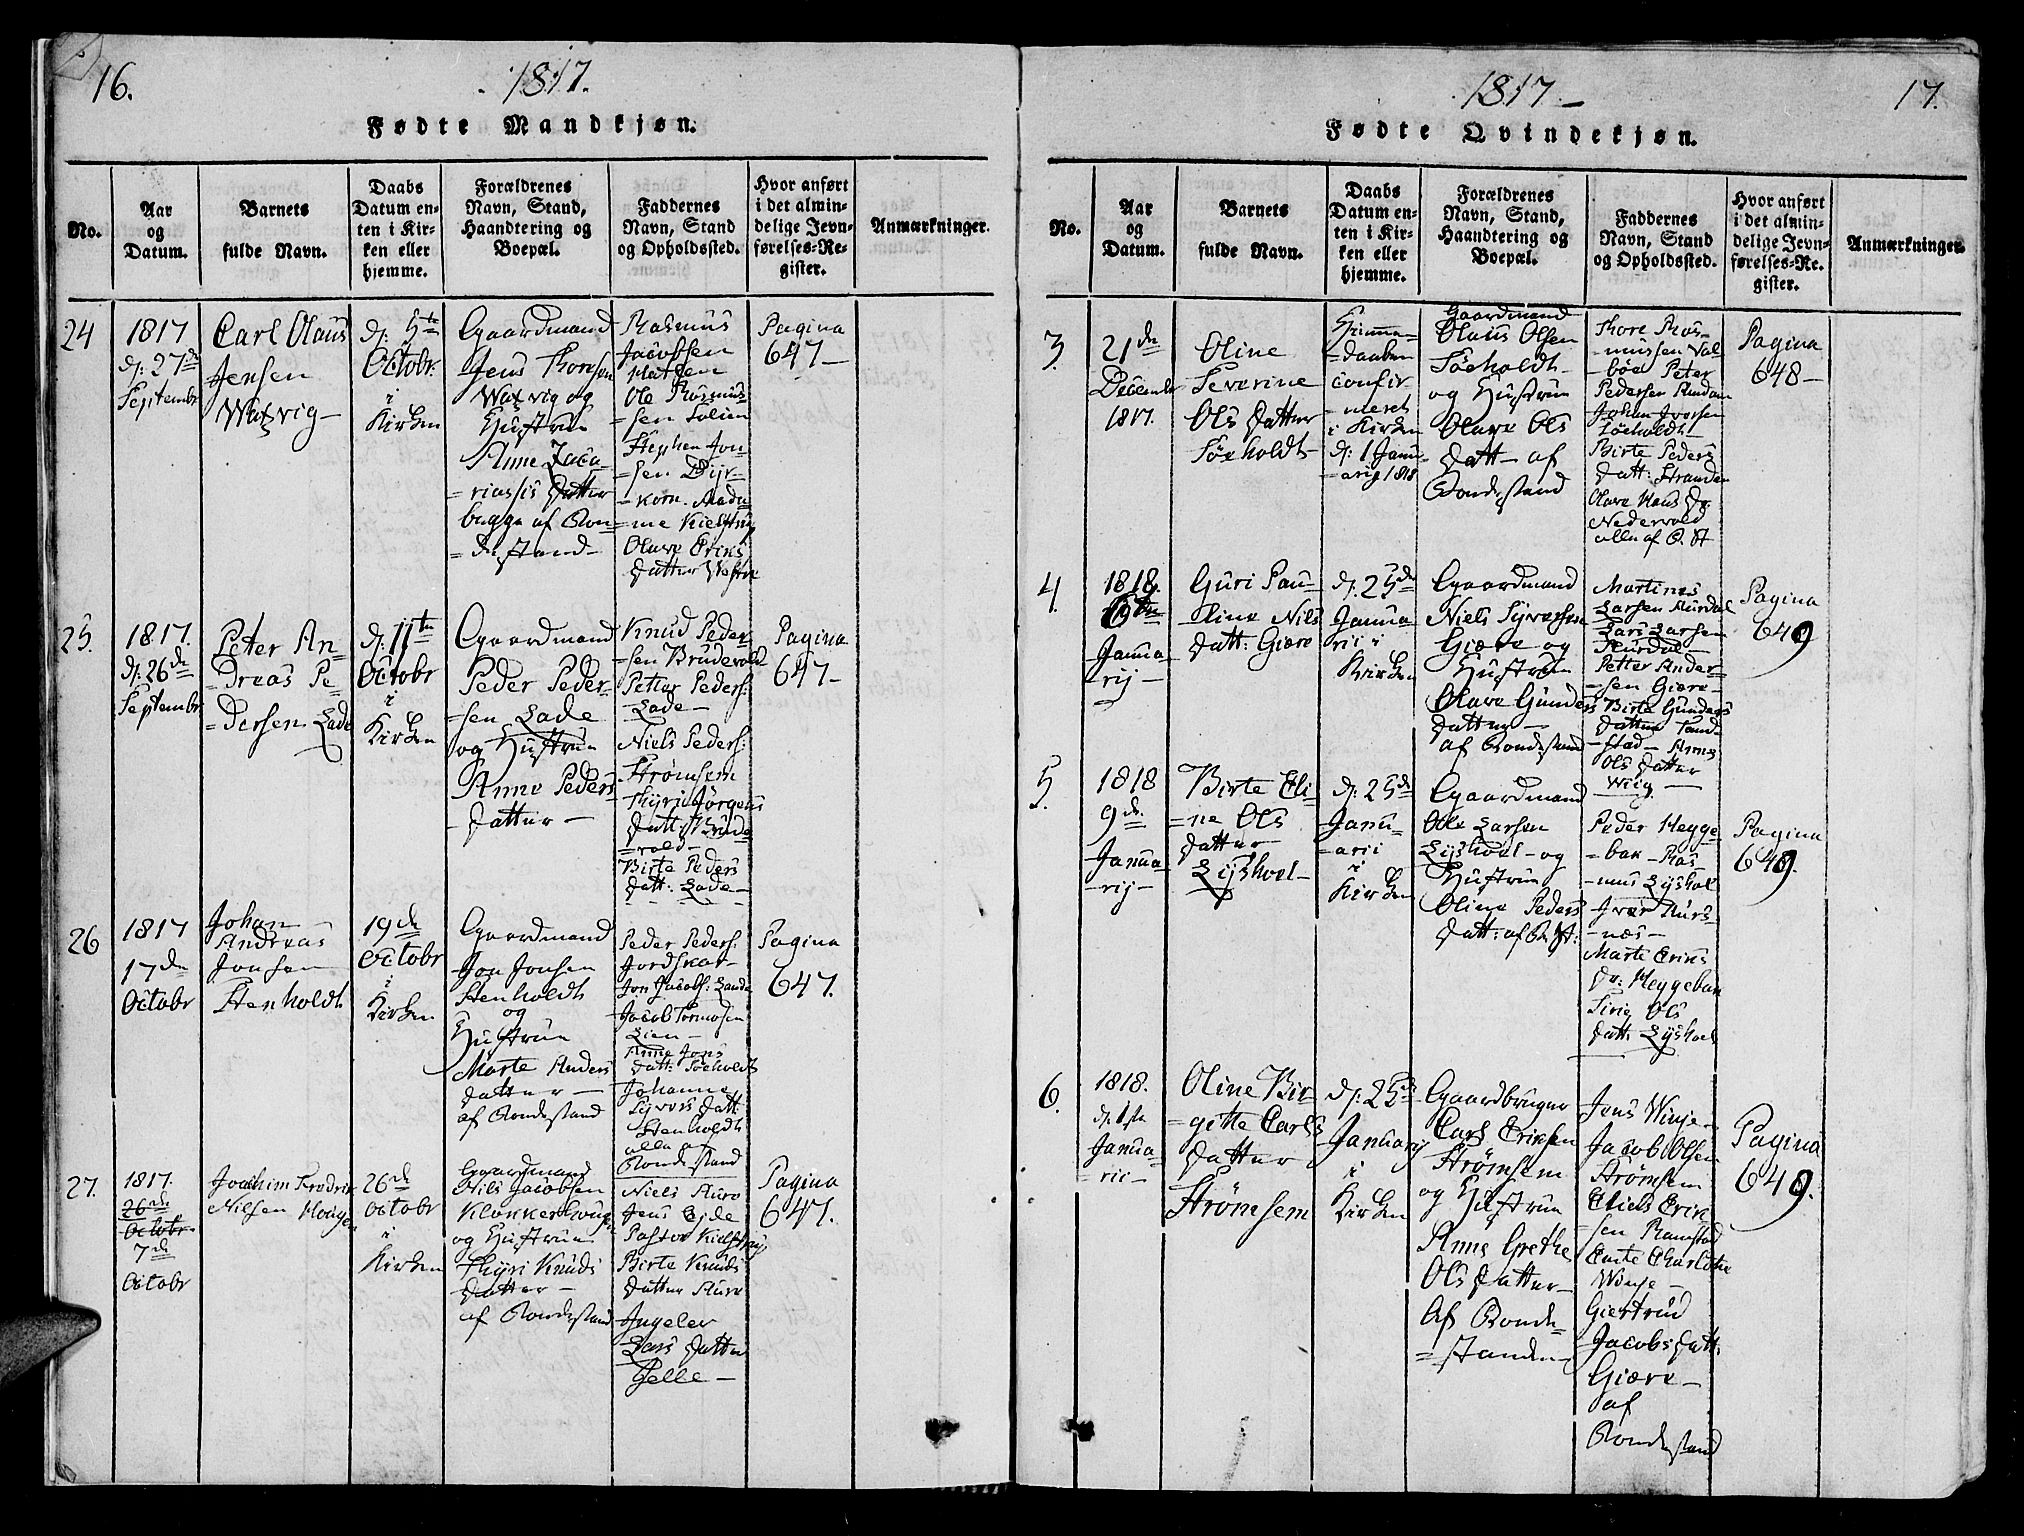 16.
1817.
Fødte Mandkjøn.
No.
Aar
og
Datum.
Barnets
fulde Navn.
Daabs
Datum en-
ten i Kir-
ken eller
hjemme.
Forældrenes
Navn, Stand,
Haandtering og
Boepæl.
Faddernes
Navn, Stand
og Opholdssted.
Hvor anført
i det almin-
delige Jevn-
førelses-Re-
gister.
Anmærkninger.
24
1817
d: 27de
Septembr
Carl Olaus
Jensen
Watvig
d: 5te
Octobr:
i
Kirken
Gaardmand
Jens Thomsen
Watvig og
Hustrue
Anne Zaca-
=riassis Datter
begge af Bon=
=destand
Rasmus
Jacobsen
Ole Rasmus=
sen Solien
Stephen Jon=
=sen Dyr=
=korn. Mada=
=me Kielstrup
Olave Eriks
Datter
Pagina
647
25.
1817.
d: 26de
Septembr
Peter An=
=dreas Pe=
=dersen Lade
d: 11te
Octobr
i
Kirken
Gaardmand
Peder Peder=
=sen Lade
og Hustrue
Anne Peders
Datter
Knud Peder=
=sen Brudevold
Petter Peders:
Lade
Niels Peders:
Strømsem
Thyri Jørgens
Datt: Brude=
=vold
Birte Peders
Datt: Lade
Pagina
647
26
1817
17de
Octobr
Johan
Andreas
Jonsen
Stenholdt
19de
Octobr
i
Kirken
Gaardmand
Jon Jonsen
Stenholdt
og
Hustrue
Marte Anders
Datter
af Bondestand
Peder Peders:
Jordskar
Jon Jacobs: Lande
Jacob Tormosen
Lien
Anne Jons
Datt: Søeholdt
Johanne
Syvers Datt:
Stenholdt
alle af
Bondestand
Pagina
647.
27.
1817.
26de
Octobr.
7de
Octobr
Joachim Fredrik
Nilsen Hougen
26de
Octobr
i
Kirken
Gaardmand
Nils Jacobsen
Klokkerhoug
og Hustrue
Thyri Knuds
Datter
af Bondestand
Niels Aure
Jens Eyde
Pastor Kielstrup
Birte Knuds
Datter Aure
Ingeler
Lars Datter
Gelle
Pagina
647.
1817
17.
Fødte Qvindekjøn.
No.
Aar
og
Datum.
Barnets
fulde Navn.
Daabs
Datum en-
ten i Kir-
ken eller
hjemme.
Forældrenes
Navn, Stand,
Haandtering og
Boepæl.
Faddernes
Navn, Stand
og Opholdssted.
Hvor anført
i det almin-
delige Jevn-
førelses-Re-
gister.
Anmærkninger.
3
21de
Decembr
1817.
Oline
Severine
Ols Datter
Søeholdt
Hjemme=
=daaben
confir=
=meret
i Kirken
d: 1 Janu=
=arij 1818
Gaardmand
Olaus Olsen
Søeholdt
og Hustrue
Olave Ols
Datt af
Bondestand
Thore Ras=
=mussen Val=
=böe Peter
Pedersen
Johan Iversen
Søeholdt
Birte Peders
Datt: Stranden
Olave Hans Dr.
Nedervold
alle af B. St
Pagina
648
4.
1818.
Janua=
rij
Guri Pau=
line Nils
Datt: Giære
d: 25de
Janua=
rii i
Kirken
Gaardmand
Niels Syversen
Giære og
Hustrue
Olave Gunders
Datter
af Bondestand
Martinus
Larsen Aurdal
Lars Larsen
Aurdal
Petter Ander=
=sen Giære
Birte Gunders
Datter Tand=
=stad Anne
Ols Datter
Wiig
Pagina
649
5.
1818
9de
Janua=
=rij
Birte Eli=
=ne Ols
Datter
Lyshoel
d: 25de
Janu=
=arii
i
Kirken
Gaardmand
Ole Larsen
Lyshoel og
Hustrue
Oline Peders
Datt: af B. St:
Peder Hegge=
=bak Ras
=mus Lyshol
Iver Aurs=
=næs
Marte Eriks
Dr: Heggebak
Sirie Ols
Datt: Lyshoel
Pagina
649.
6.
1818.
d: 1ste
Janua=
=rii
Oline Bir=
=gitte Carls
Datter
Strømsem
d: 25de
Januarij
i
Kirken
Gaardbruger
Carl Eriksen
Strømsem
og Hustrue
Anne Grethe
Ols Datter
Af Bonde=
=standen
Jens Winje
Jacob Olsen
Strømsem
Eliels Erik
sen Ramstad
Charlothe
Winje
Giertrud
Jacobs Datt:
Giære
af
Bondestand
Pagina
649.